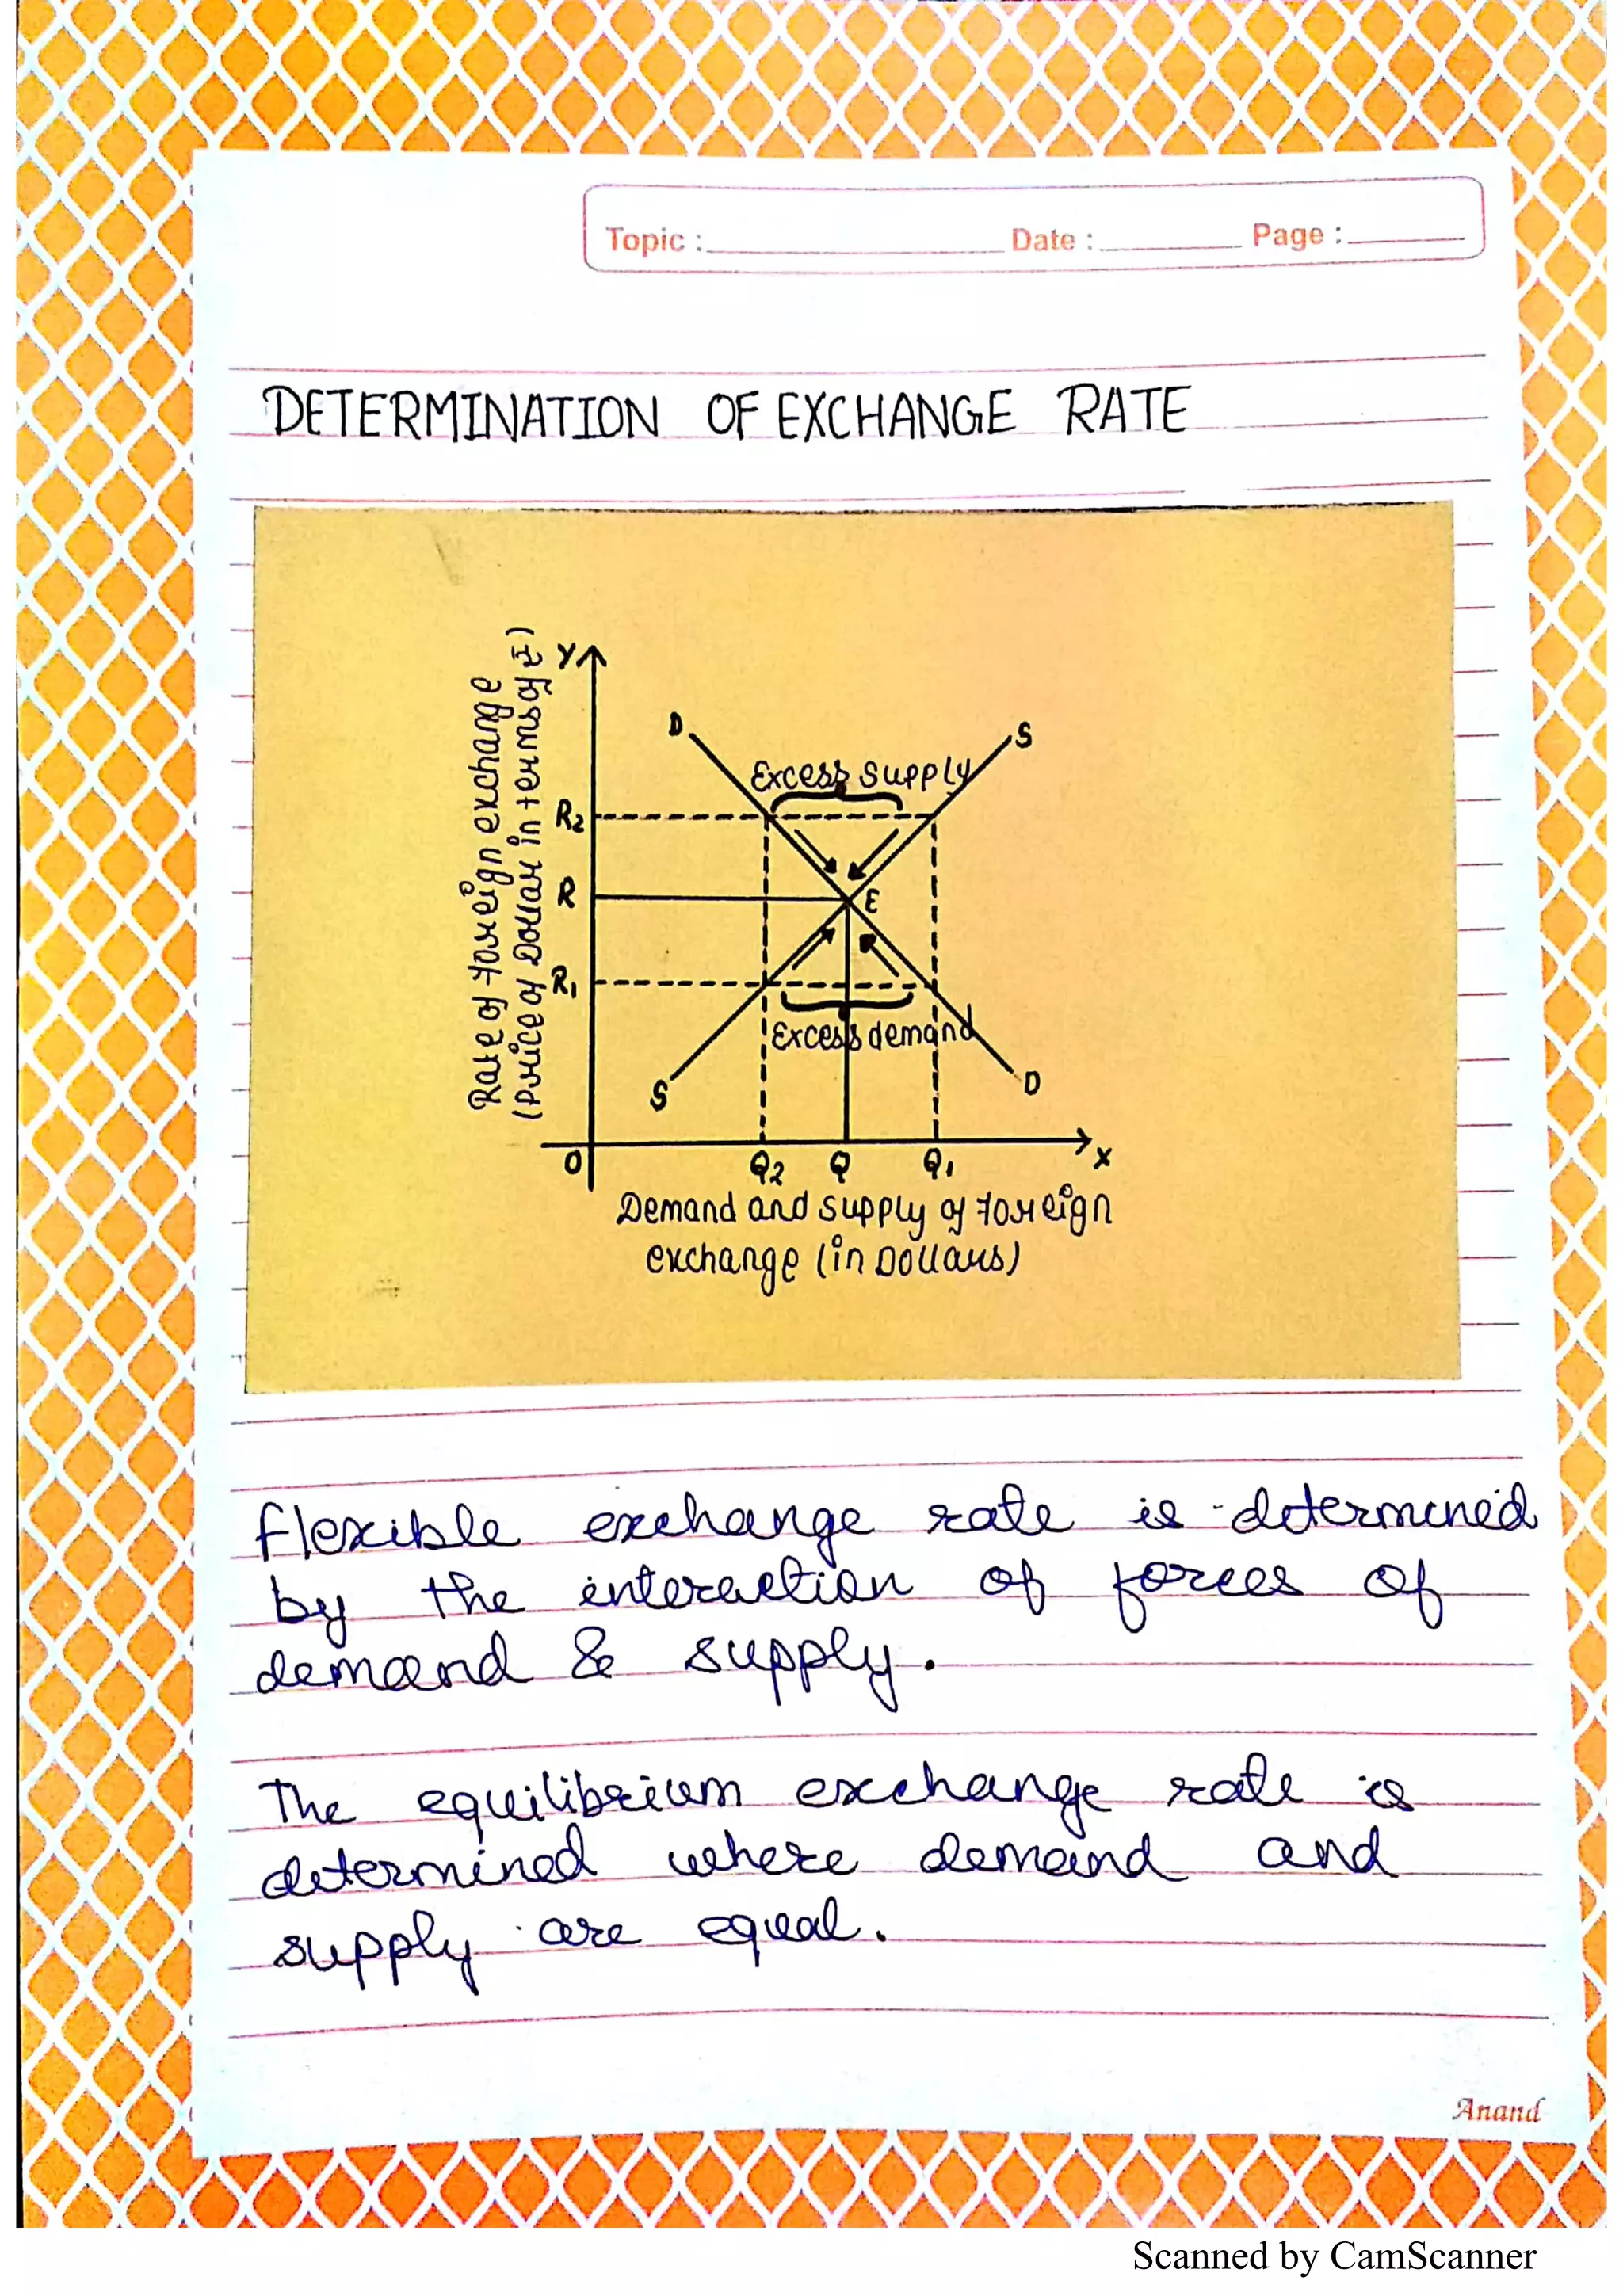 Topic :
Date :
Page :
DETERMINATION OF EXCHANGE RATE
Rate of foreign exchange
(Price of Dollar in terms of ₹)
Y
D
S
Excess supply
R2
R
E
R1
Excess demand
S
D
O
Q2
Q
Q1
X
Demand and supply of foreign
exchange (in Dollars)
Flexible exchange rate is determined
by the interaction of forces of
demand & supply.
The equilibrium exchange rate is
determined where demand and
supply are equal.
Anand
Scanned by CamScanner